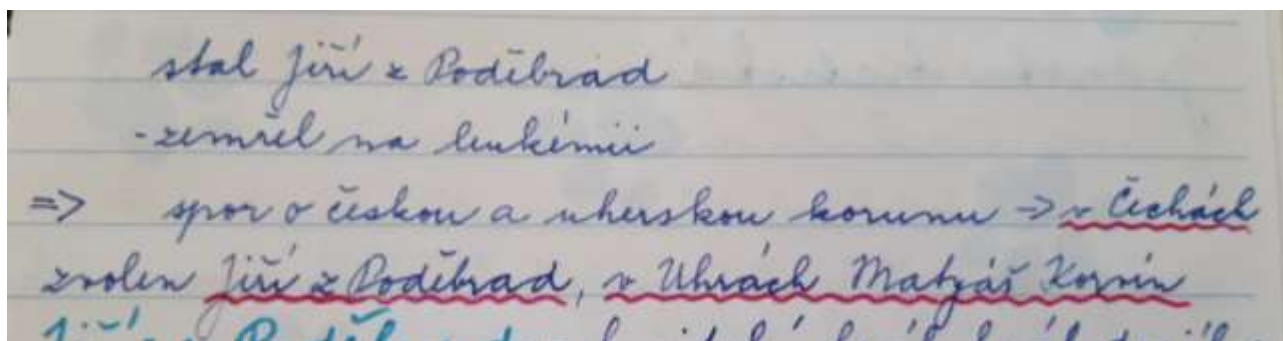 stal Jiří z Poděbrad
-zemřel na leukémii
=> spor o českou a uherskou korunu -> v Čechách
zvolen Jiří z Poděbrad, v Uhrách Matyáš Korvín